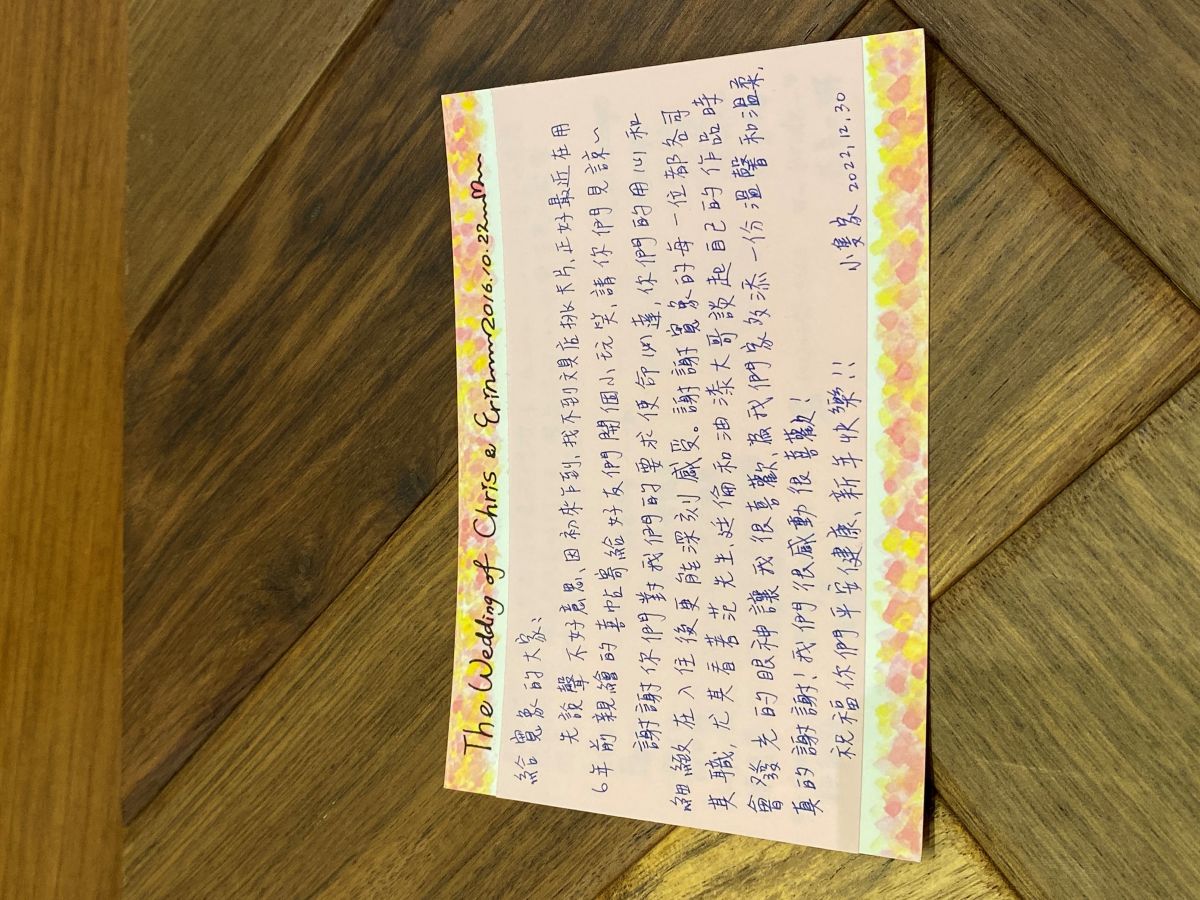 The Wedding of Chris & Erin 2016.10.22
給寬象的大家、
先說聲不好意思、因初來乍到、找不到文具店挑卡片、正好最近在用
6年前親繪的喜帖寄給好友們開個小玩笑、請你們見諒~
謝謝你們對我們的要求使命必達，你們的用心和
細緻在入住後更能深刻感受。謝謝寬象的每一位都各司
其職，尤其看著范先生、廷倫和油漆大哥談起自己的作品時
會發光的眼神讓我很喜歡、為我們家效添一份溫馨和溫柔，
真的謝謝！我們很感動很喜歡！
祝福你們平安健康、新年快樂！！
小隻家 2022.12.30